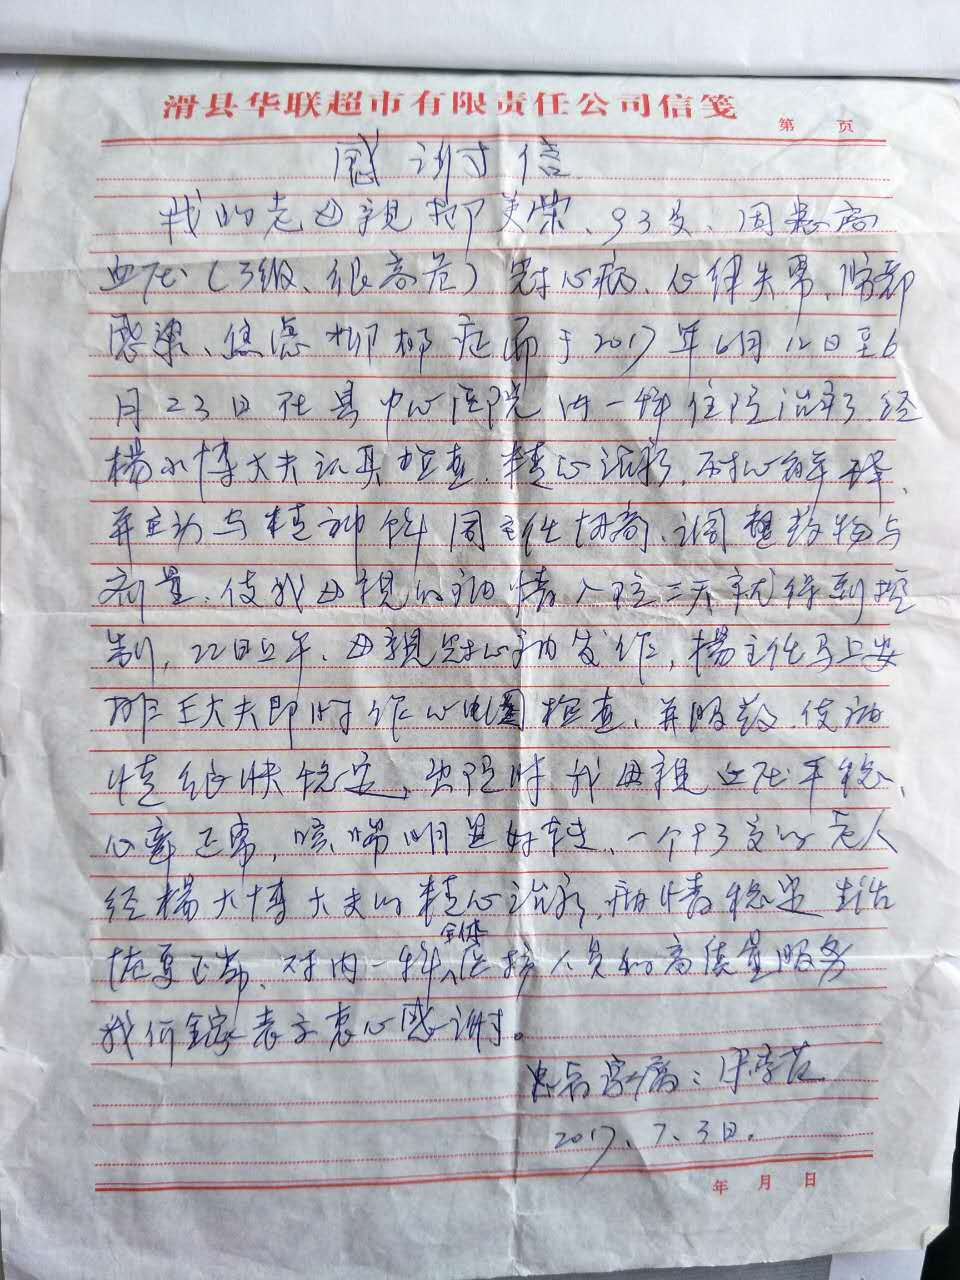 滑县华联超市有限责任公司信笺
第 页
感谢信
我的老母亲柳美荣、93岁、因患高
血压(3级、很高危)冠心病、心律失常、肺部
感染、焦虑抑郁症而于2017年6月12日至6
月23日在县中心医院内一科住院治疗,经
楊水博大夫认真检查、精心治疗,耐心解释、
并主动与精神科周主任协商、调整药物与
剂量,使我母亲的病情入院三天就得到控
制,22日上午、母亲冠心病发作,楊主任马上安
排王大夫即时作心电图检查、并服药、使病
情很快稳定、出院时我母亲血压平稳、
心率正常,咳喘明显好转、一个93岁的老人
经楊大博大夫的精心治疗,病情稳定生活
恢复正常、对内一科全体医护人员的高质量服务
我们全家表示衷心感谢。
患者家属:宋
2017、7、3日.
年 月 日